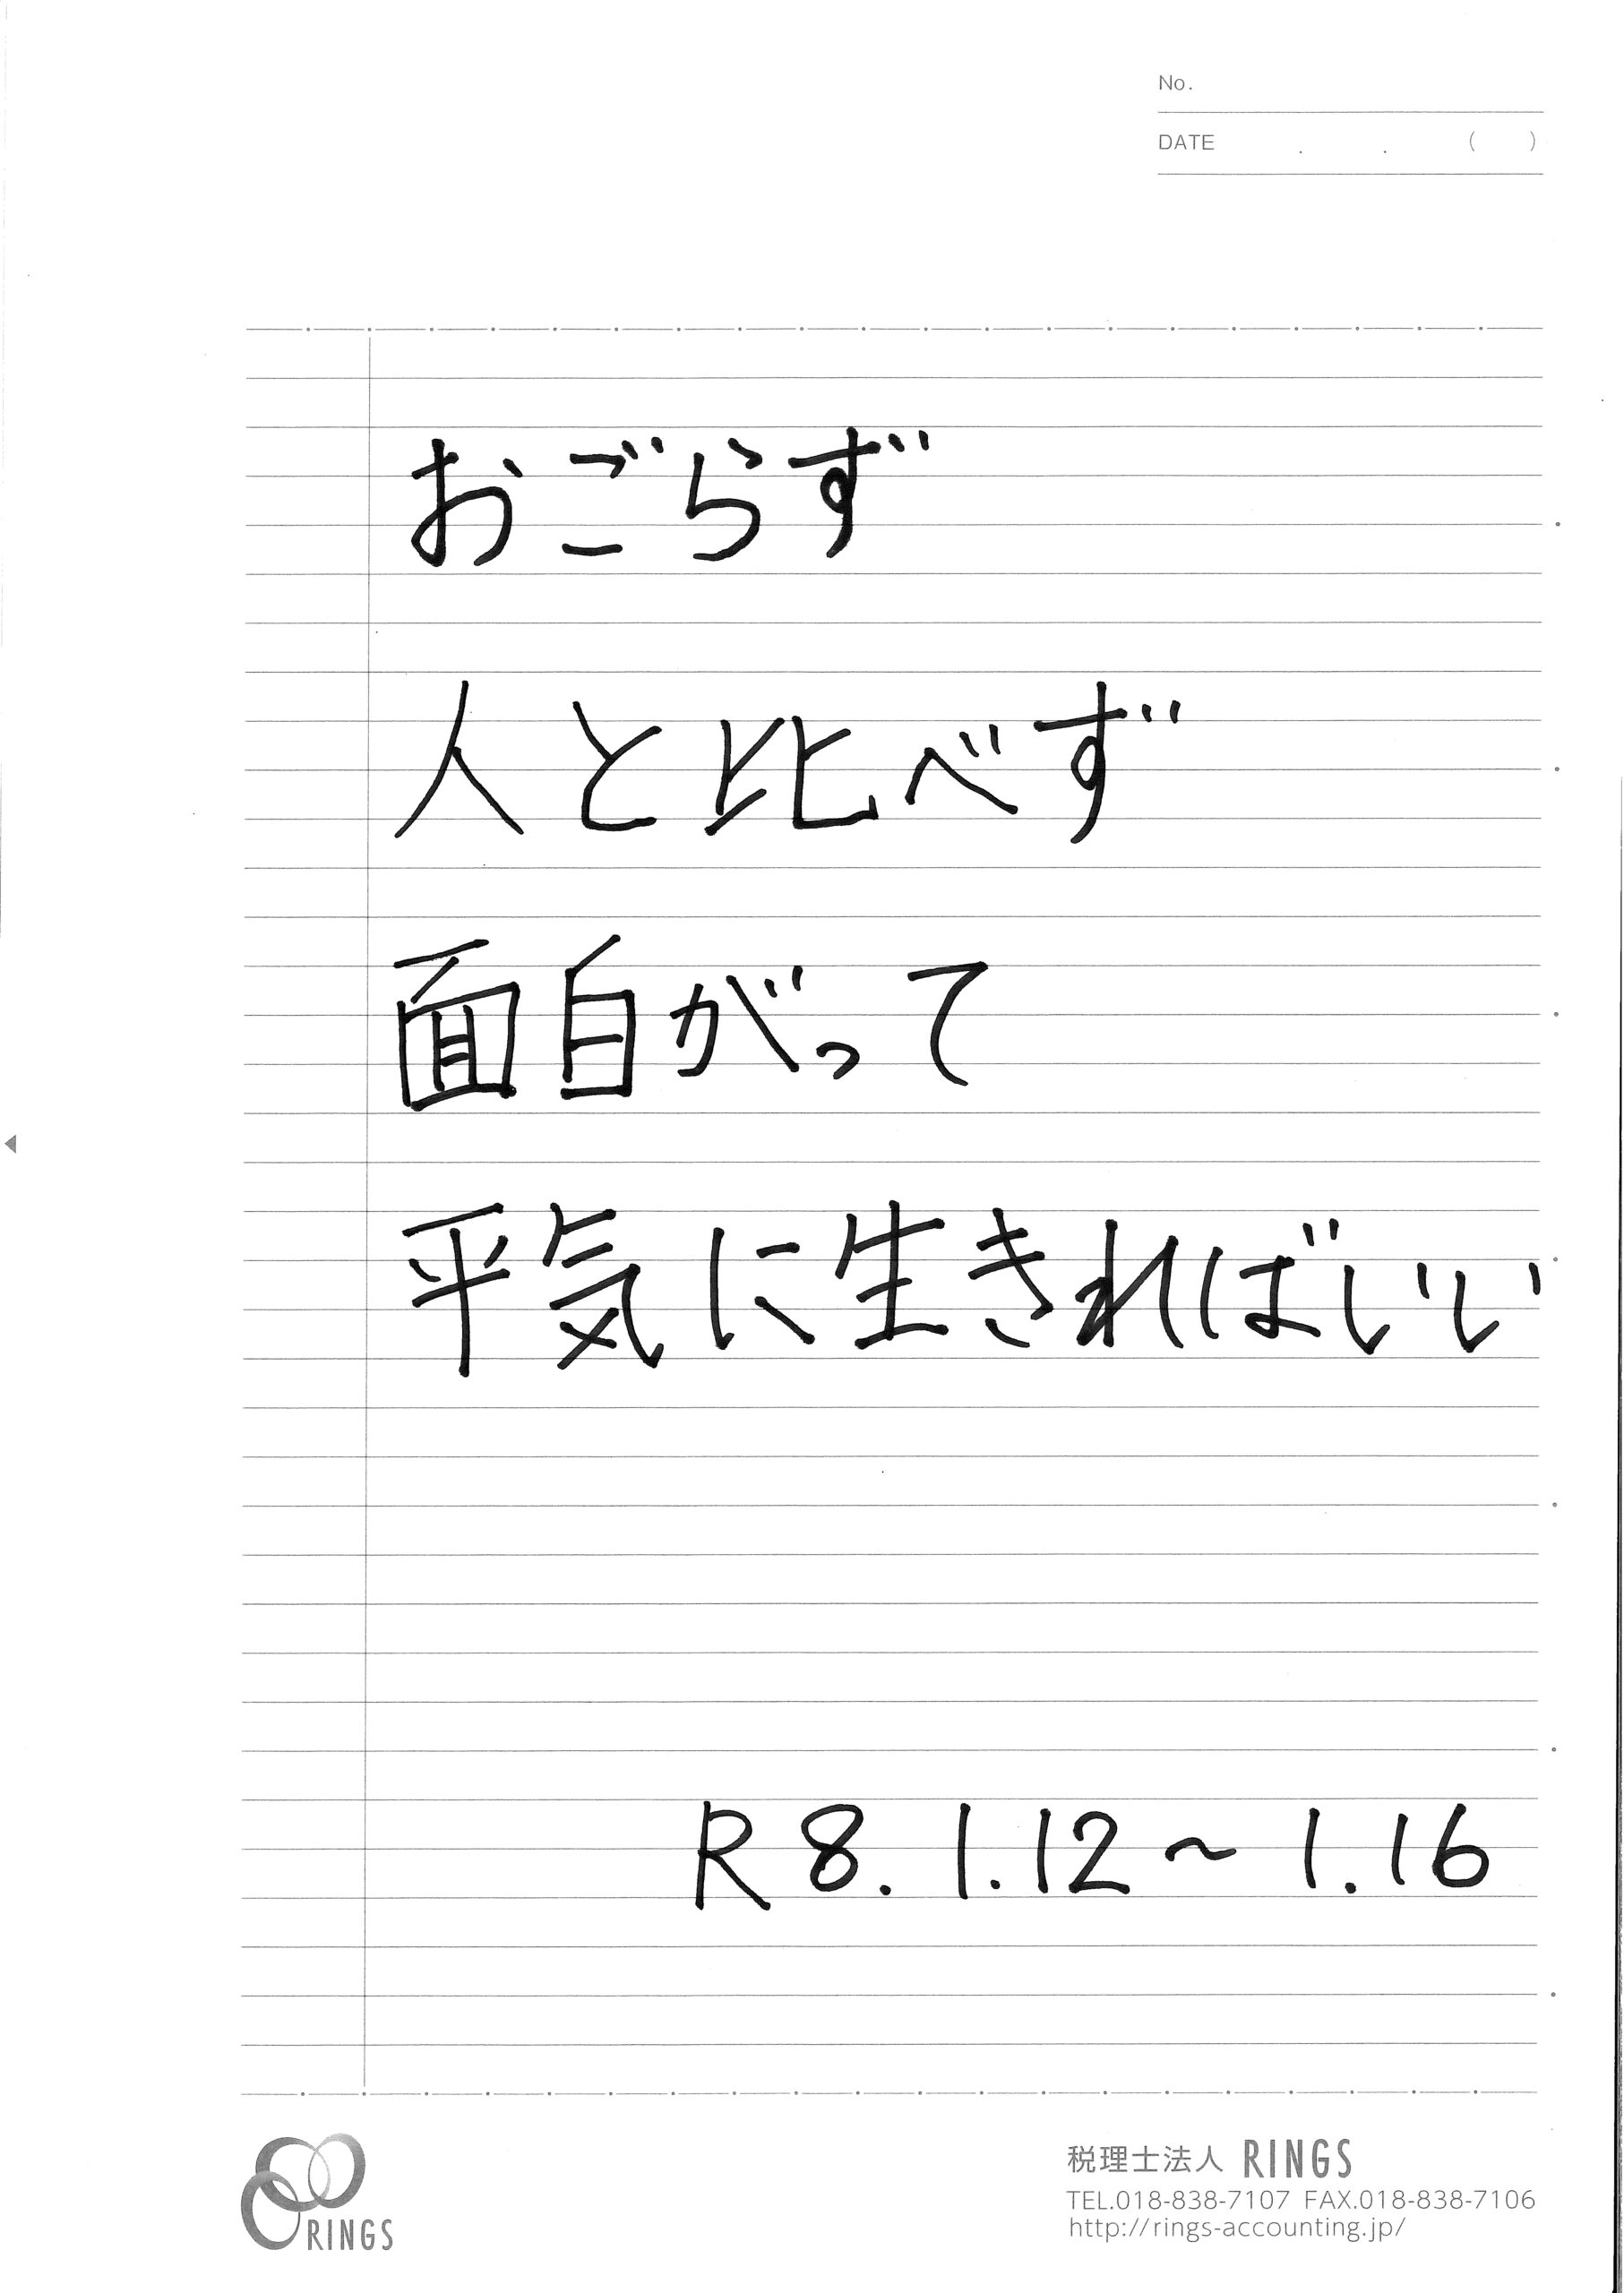 No.
DATE . . ( )
おごらず
人と比べず
面白がって
平気に生きればいい
R8.1.12～1.16
RINGS
税理士法人 RINGS
TEL.018-838-7107 FAX.018-838-7106
http://rings-accounting.jp/